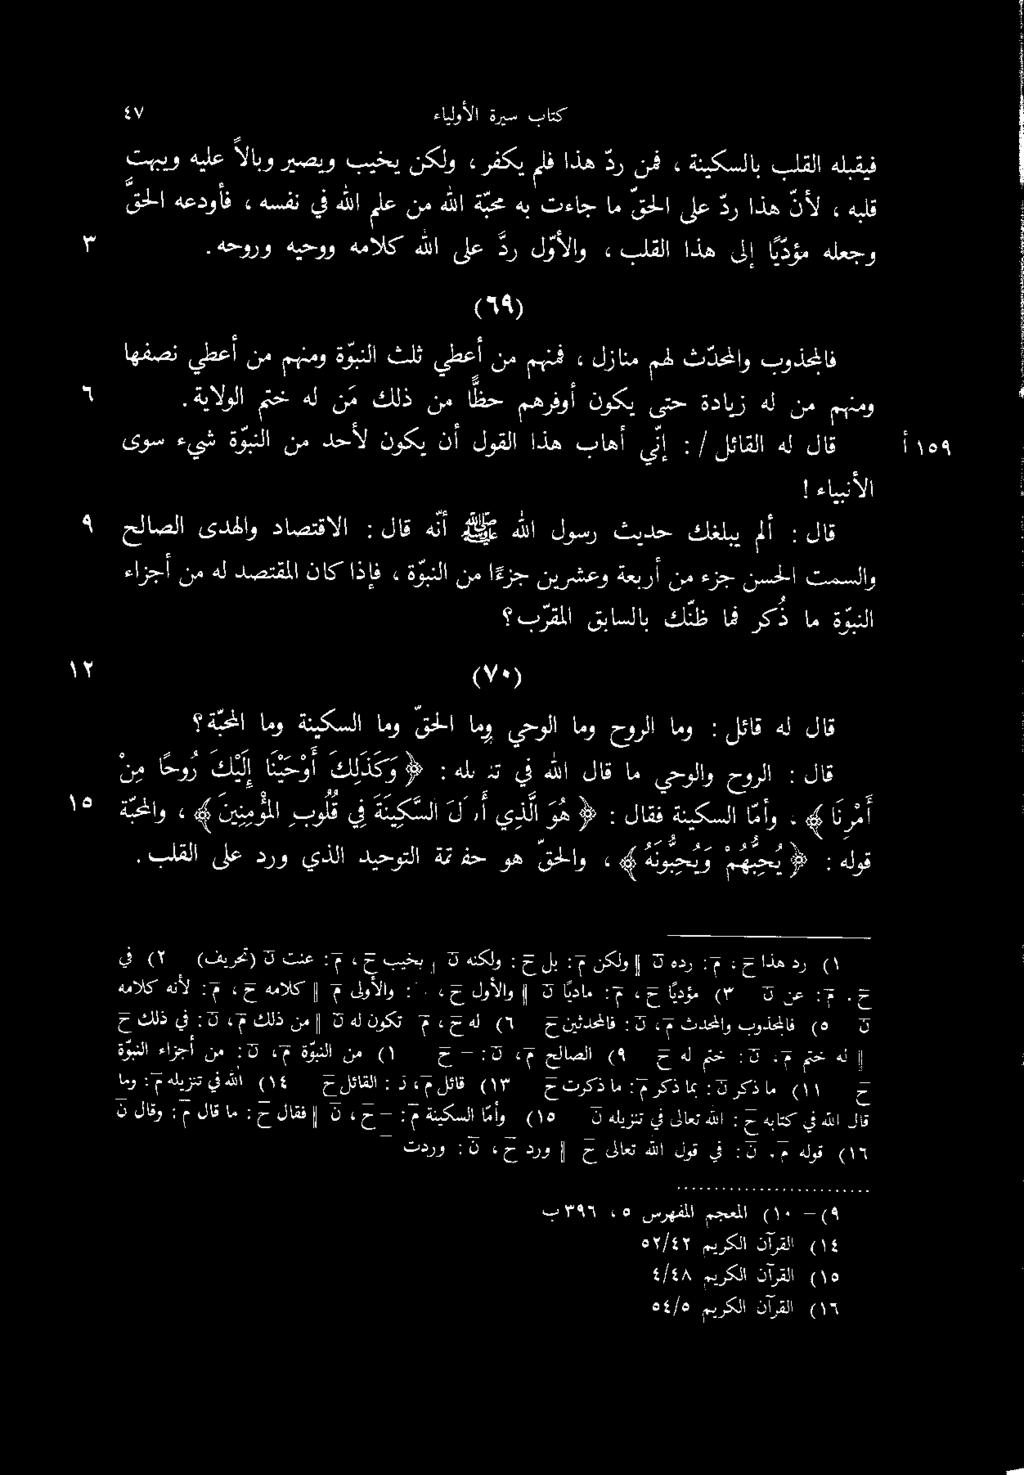 كتاب سيرة الأولياء ٤٧
فيقبله القلب بالسكينة ، فمن ردّ هذا فلم يكفر ، ولكن يخيب ويصير وبالاً عليه ويبهت
قلبه ، لأنّ هذا ردّ على الحقّ ما جاءت به محبّة الله من علم الله في نفسه ، فأودعه الحقَّ
وجعله مؤدّيًا إلى هذا القلب ، والأوّل ردَّ على الله كلامه ووحيه وروحه . ٣
(٦٩)
فالمجذوب والمحدّث لهم منازل ، فمنهم من أعطي ثلث النبوّة ومنهم من أعطي نصفها
ومنهم من له زيادة حتى يكون أوفرهم حظًّا من ذلك مَن له ختم الولاية . ٦
١٥٩ أ قال له القائل / : إنّي أهاب هذا القول أن يكون لأحد من النبوّة شيء سوى
الأنبياء !
قال : ألم يبلغك حديث رسول الله ﷺ أنّه قال : الاقتصاد والهدى الصالح ٩
والسمت الحسن جزء من أربعة وعشرين جزءًا من النبوّة ، فإذا كان المقتصد له من أجزاء
النبوّة ما ذُكر فما ظنّك بالسابق المقرّب ؟
(٧٠) ١٢
قال له قائل : وما الروح وما الوحي وما الحقّ وما السكينة وما المحبّة ؟
قال : الروح والوحي ما قال الله في : ﴿ وَكَذَلِكَ أَوْحَيْنَا إِلَيْكَ رُوحًا مِنْ
أَمْرِنَا ﴾ ، وأمّا السكينة فقال : ﴿ هُوَ الَّذِي السَّكِينَةَ فِي قُلُوبِ المؤْمِنِينَ ﴾ ، والمحبّة ١٥
قوله : ﴿ يُحِبُّهُمْ وَيُحِبُّونَهُ ﴾ ، والحقّ هو التوحيد الذي ورد على القلب .
١) رد هذا ح ، م : رده ن || ولكن م : بل ح : ولكنه ن | يخيب ح ، م : عنت ن (تحريف) ٢) في
ح ، م : عن ن ٣) مؤديًا ح ، م : ماديًا ن || والأول ح ، : والأولى م || كلامه ح ، م : لأنه كلامه
ن ٥) فالمجذوب والمحدث م ، ن : فالمحدثين ح ٦) له ح ، م تكون له ن || من ذلك م ، ن : في ذلك ح
|| له ختم م ، ن : ختم له ح ٩) الصالح م ، ن : – ح ١) من النبوة م ، ن : من أجزاء النبوة
ح ١١) ما ذكر ن : بما ذكر م : ما ذكرت ح ١٣) قائل م ، ن : القائل ح ١٤) الله في تنزيله م : وما
قال الله في كتابه ح : الله تعالى في تنزيله ن ١٥) وأمّا السكينة م : – ح ، ن || فقال ح : ما قال م : وقال ن
١٦) قوله م ، ن : في قول الله تعالى ح || ورد ح ، ن : وردت
٩) – ١٠) المعجم المفهرس ٥ ، ٣٩٦ ب
١٤) القرآن الكريم ٥٢/٤٢
١٥) القرآن الكريم ٤/٤٨
١٦) القرآن الكريم ٥٤/٥